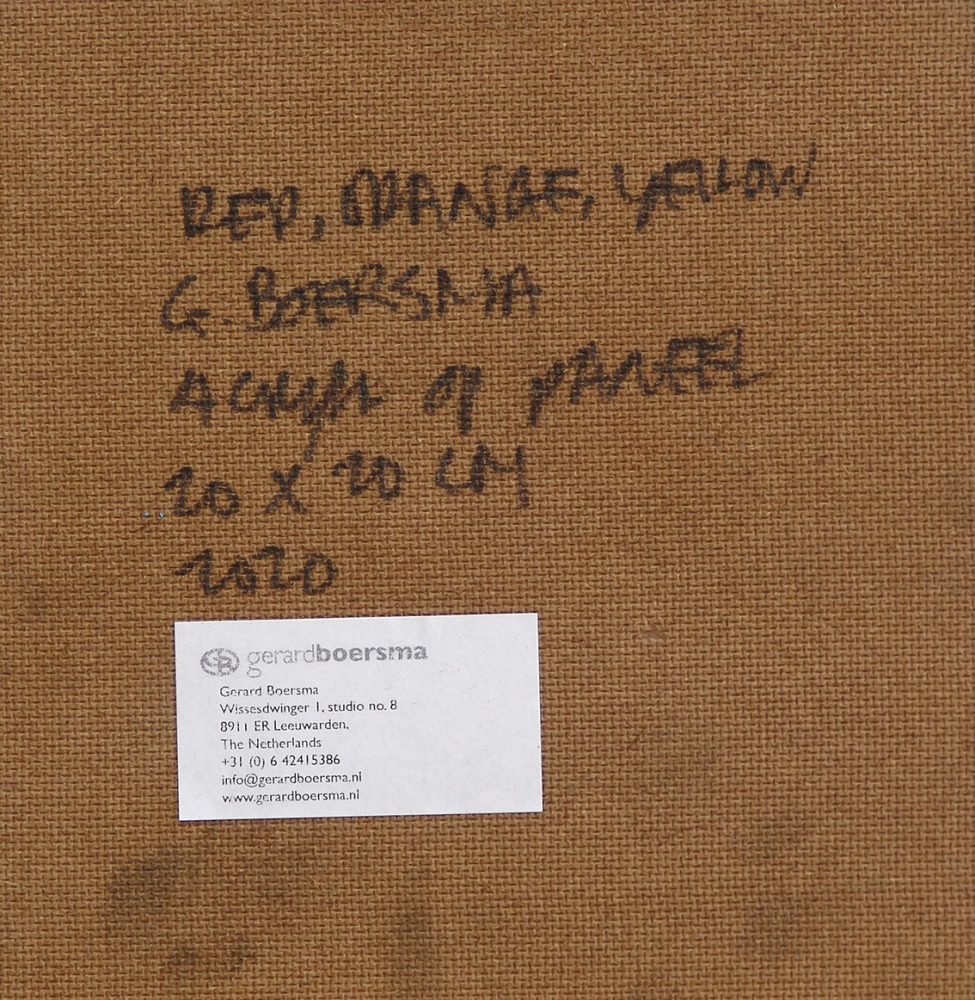 RED, ORANGE, YELLOW
G. BOERSMA
ACRYL OP PANEEL
20 X 20 CM
2020
GB gerardboersma
Gerard Boersma
Wissesdwinger 1, studio no. 8
8911 ER Leeuwarden,
The Netherlands
+31 (0) 6 42415386
info@gerardboersma.nl
www.gerardboersma.nl